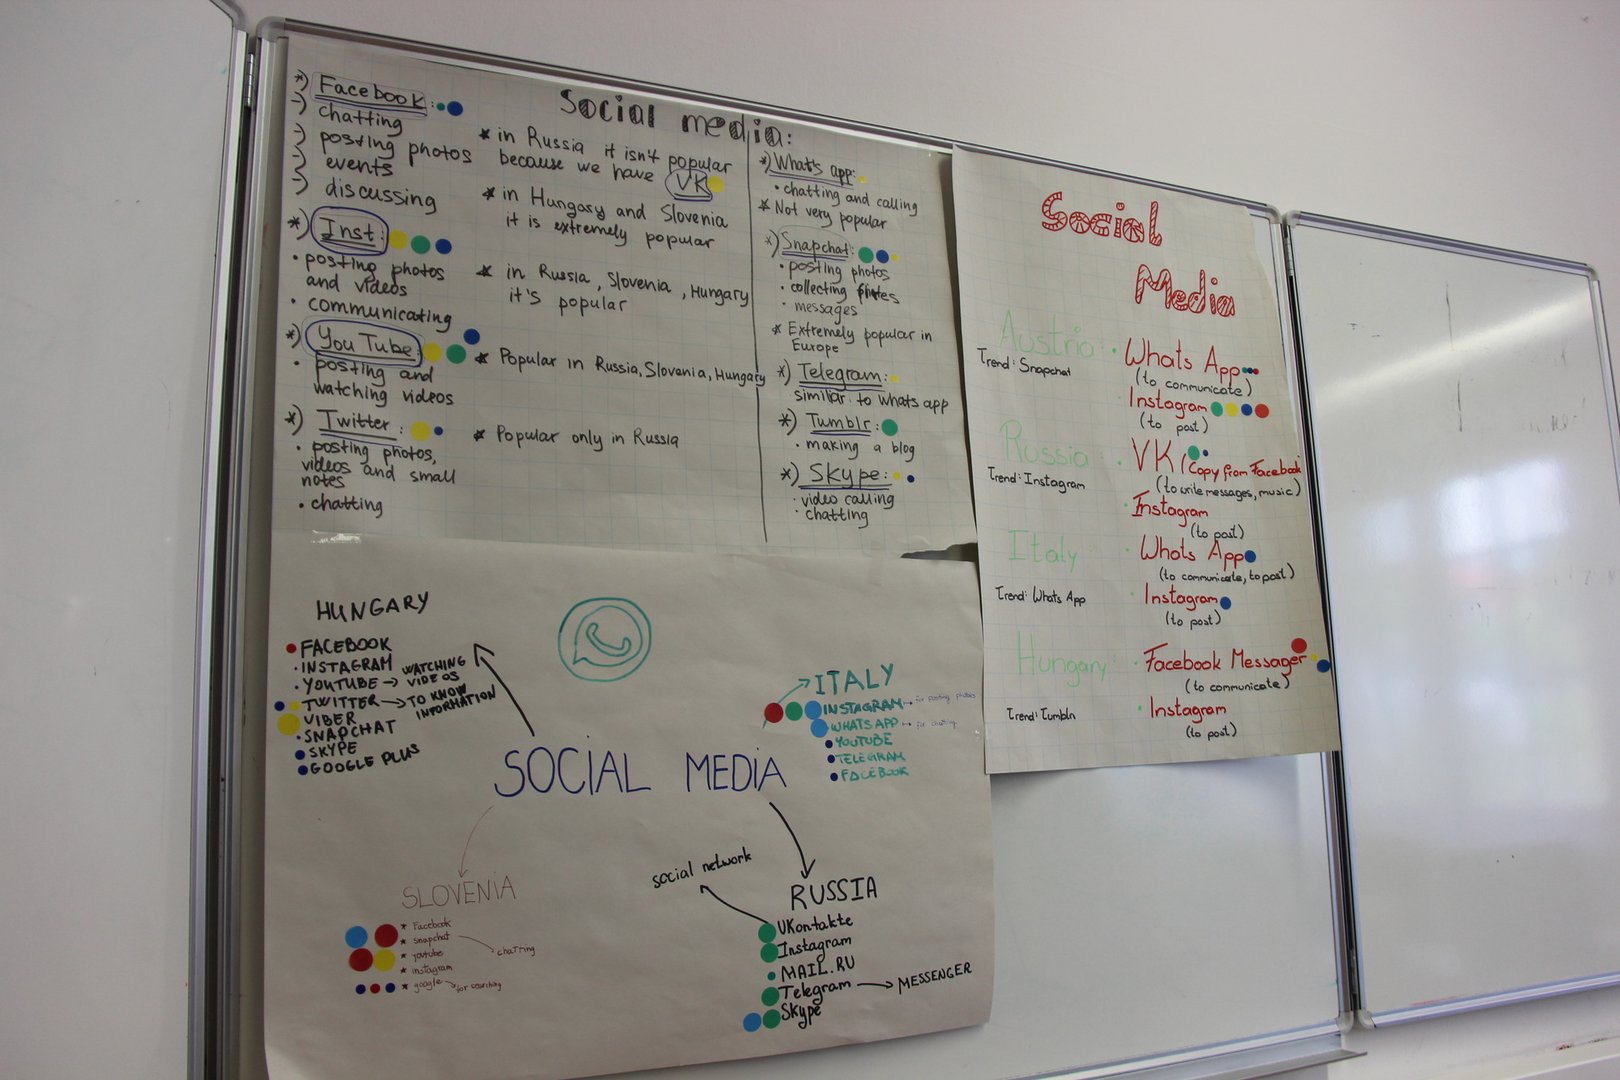 Social media:
*) Facebook:
-) chatting
-) posting photos
-) events
-) discussing
* in Russia it isn't popular
because we have VK
* in Hungary and Slovenia
it is extremely popular
*) Inst:
• posting photos
and videos
• communicating
* in Russia, Slovenia, Hungary
it's popular
*) You Tube:
• posting and
watching videos
* Popular in Russia, Slovenia, Hungary
*) Twitter:
• posting photos,
videos and small
notes
• chatting
* Popular only in Russia
*) What's app:
• chatting and calling
* Not very popular
*) Snapchat:
• posting photos
• collecting
• messages
* Extremely popular in
Europe
*) Telegram:
similiar to whats app
*) Tumblr:
• making a blog
*) Skype:
• video calling
• chatting
Social
Media
Austria • Whats App
Trend: Snapchat
(to communicate)
• Instagram
(to post)
Russia • VK (Copy from Facebook)
Trend: Instagram
(to write messages, music)
• Instagram
(to post)
Italy • Whats App
(to communicate, to post)
Trend: Whats App
• Instagram
(to post)
Hungary • Facebook Messager
(to communicate)
Trend: Tumbln
• Instagram
(to post)
SOCIAL MEDIA
HUNGARY
FACEBOOK
• INSTAGRAM
• YOUTUBE → WATCHING
VIDEOS
TWITTER → TO KNOW
INFORMATION
VIBER
• SNAPCHAT
SKYPE
GOOGLE PLUS
ITALY
INSTAGRAM → for posting photos
WHATSAPP → for chatting
YOUTUBE
TELEGRAM
FACEBOOK
SLOVENIA
* Facebook
* snapchat
chatting
* youtube
* instagram
* google → for searching
RUSSIA
social network
VKontakte
Instagram
MAIL.RU
Telegram → MESSENGER
Skype